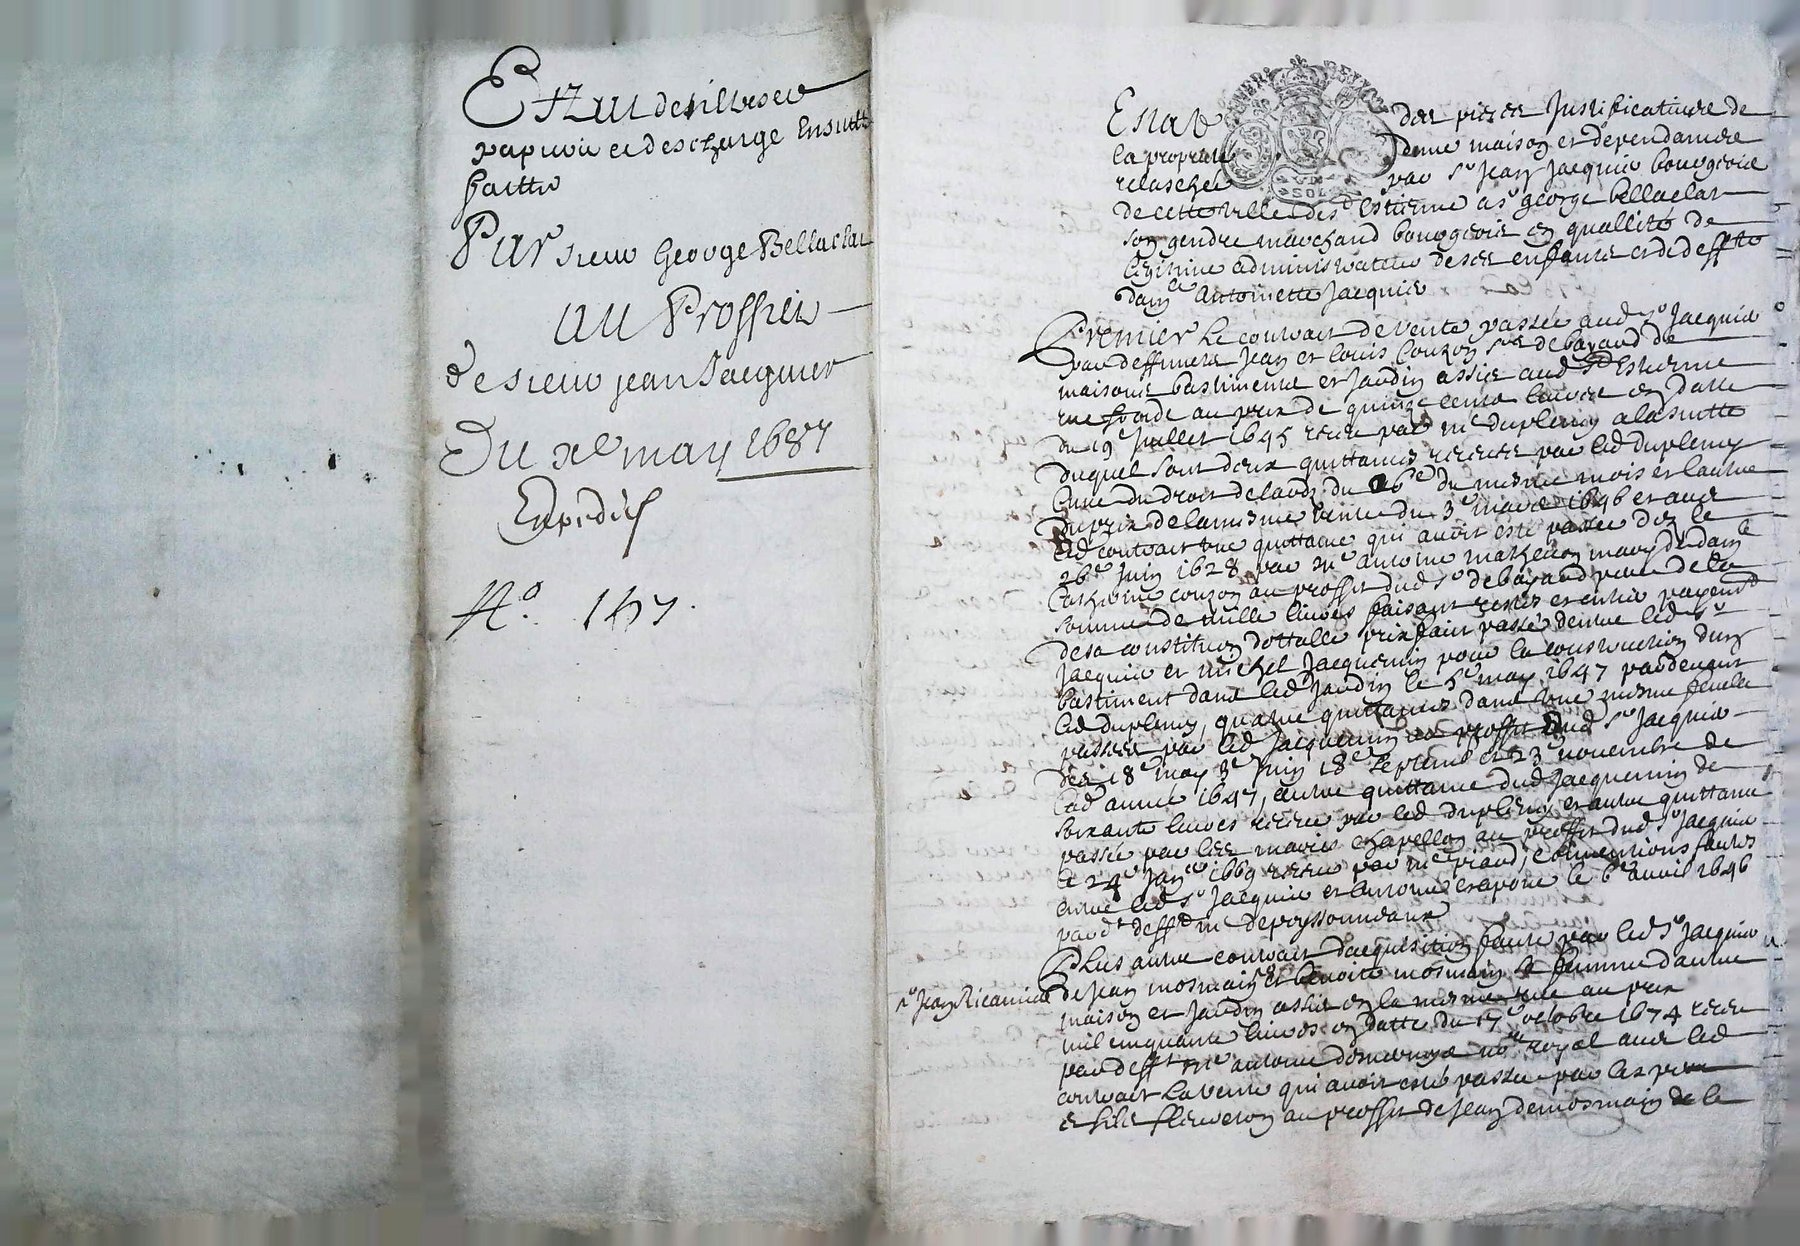 Estat de tiltres et
papiers et descharge Ensuitte
faitte
Par sieur George Bellaclat
au Proffict
de sieur jean Jacquier
Du xe may 1687
Expedié
No. 147.
Estat des pieces Justificatives de
la propriete d'une maison et dependances
relaschée par Sr Jean Jacquier bourgeois
de cette ville de St Estienne a Sr george bellaclat
son gendre marchand bourgeois en quallité de
legitime administrateur de ses enfants et de deffte
damle Antoinette Jacquier
Premier le contract de vente passée aud Sr Jacquier
par deffuncts Jean et louis Couzon Srs de bayard de
maisons bastiments et Jardin assis aud St Estienne
rue froide au prix de quinze cents livres en datte
du 19e Juillet 1645 receu par me dupleny a la suitte
duquel sont deux quittances receues par led dupleny
l'une du droit de laods du 26e du mesme mois et l'autre
du prix de la mesme vente du 3e mars 1646 et avec
led contract une quittance qui avoit esté passée dez le
26e Juin 1628 par me antoine mathevon mary de damle
Catherine couzon au proffit dud Sr de bayard pere de la
somme de mille livres faisant restes et entier payement
de sa constitution dottalle prixfaict passé entre led Sr
Jacquier et michel Jacquemin pour la construction d'un
bastiment dans led Jardin le 5e may 1647 pardevant
led dupleny, quatre quittances dans une mesme feuille
passées par led Jacquemin au proffit dud Sr Jacquier
des 18e may 3e Juin 18e septembre et 23e novembre de
lad année 1647, autre quittance dud Jacquemin de
soixante livres receue par led dupleny et autre quittance
passée par les mariés chapellon au proffit dud Sr Jacquier
le 24e Janer 1669 receue par me piaud, Conventions faites
entre led Sr Jacquier et Antoine crapone le 6e avril 1646
pardt defft me de poyssonneaux
Plus autre contract d'acquisition faite par led Sr Jacquier
Sr Jean Ricamier
de Jean mosmain et benoite mosmain sa femme d'autre
maison et Jardin assis en la mesme rue au prix
mil cinquante livres en datte du 17e octobre 1674 receu
par defft me antoine nore royal avec led
contract la vente qui avoit esté passée par les pere
et fils fleurdeton au proffit de Jean demosmain de la